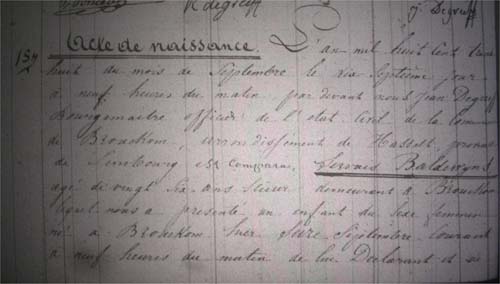 R degreeff J Degreeff
154
Acte de naissance. L'an mil huit cent
huit du mois de Septembre le dix Septième jour
à neuf heures du matin par devant nous Jean
Bourgmaitre officier de l'état Civil de la Commune
de Brouckom, arrondissement de Hasselt, province
de Limbourg est Comparu, Servais Baldewyns
agé de vingt six ans demeurant à Brouckom
lequel nous a présenté un enfant du Sexe féminin
né à Brouckom hier Septembre courant
à neuf heures du matin de lui Déclarant et